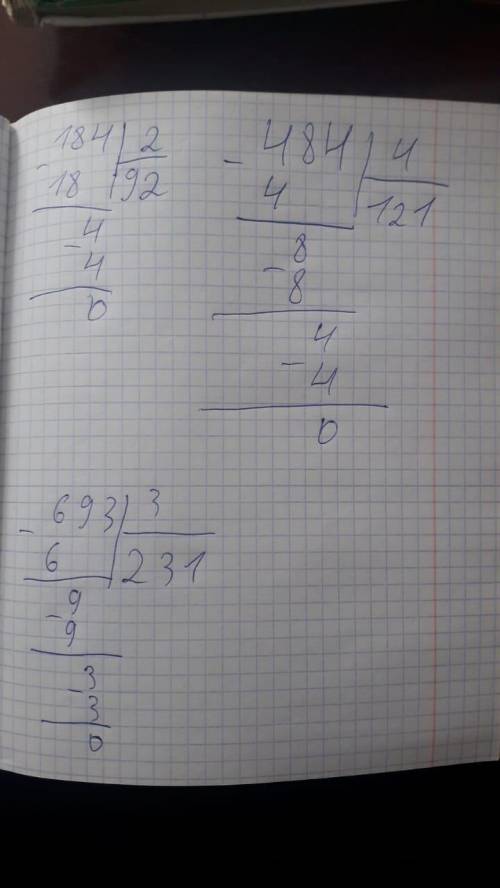 - 184 | 2
18 | 92
4
- 4
0
- 484 | 4
4 | 121
8
- 8
4
- 4
0
- 693 | 3
6 | 231
- 9
9
- 3
3
0